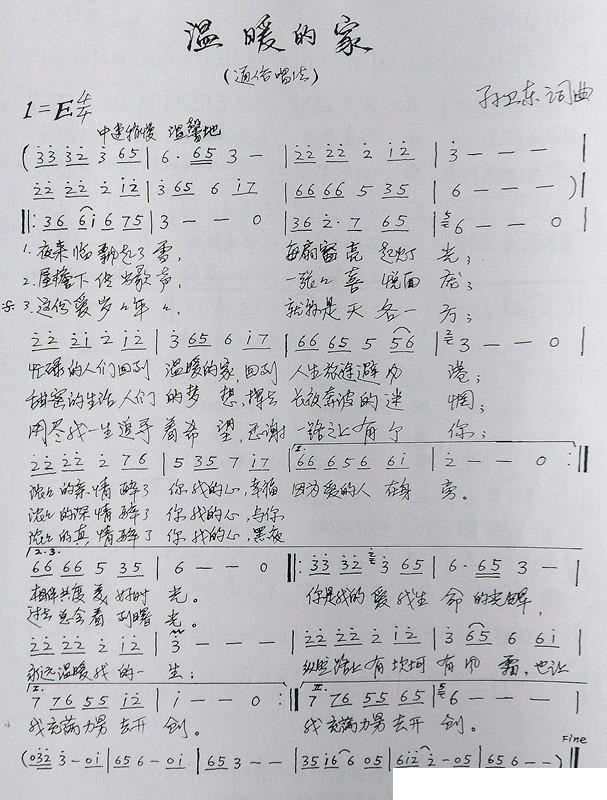 温暖的家
(通俗唱法)
1=E 4/4
孙卫东 词曲
中速稍慢 温馨地
(3̇3̇ 3̇2̇ 3̇ 65 | 6· 65 3 — | 2̇2̇ 2̇2̇ 2̇ 1̇2̇ | 3̇ — — — |
2̇2̇ 2̇2̇ 2̇ 1̇2̇ | 3̇ 65 6 1̇7 | 66 66 5 35 | 6 — — — )|
‖: 36 61̇ 6 75 | 3 — — 0 | 36 2̇·7 65 | 6 — — 0 |
1. 夜来临飘起了雪, 每扇窗亮起灯光;
2. 屋檐下传出歌声, 一张张喜悦面庞;
3. 这份爱岁岁年年, 就算是天各一方;
2̇2̇ 2̇1̇ 2̇ 1̇2̇ | 3̇ 65 6 1̇7 | 66 65 5 56 | 3 — — 0 |
忙碌的人们回到 温暖的家,回到 人生旅途避风 港;
甜蜜的生活人们 的梦想, 长夜奔波的迷 惘;
用尽我一生追寻 着希望,还谢 一路之上有个 你;
2̇2̇ 2̇2̇ 2̇ 76 | 5 35 7 1̇7 | I. 66 656 61̇ | 2̇ — — 0 :‖
浓浓的亲情醉了 你我的心,幸福 因为爱的人在身 旁。
浓浓的深情醉了 你我的心,与你
浓浓的真情醉了 你我的心,黑夜
2.3.
66 66 5 35 | 6 — — 0 ‖: 3̇3̇ 3̇2̇ 3̇ 65 | 6· 65 3 — |
相伴共度美好时 光。 你是我的爱我生 命的光辉,
过去总会看到曙 光。
2̇2̇ 2̇2̇ 2̇ 1̇2̇ | 3̇ — — — | 2̇2̇ 2̇2̇ 2̇ 1̇2̇ | 3̇ 65 6 61̇ |
永远温暖我的一 生; 纵然路上有坎坷 有风霜,也让
I. 7 76 55 1̇2̇ | 1̇ — — 0 :‖ II. 7 76 55 65 | 6 — — — |
我充满力男去开 创。 我充满力男去开 创。
Fine
(032̇ 3̇ — 01̇ | 65 6 — 01̇ | 65 3 — — | 35 1̇6 6 05 | 61̇2̇ 2̇ — 05 | 65 6 — — )‖